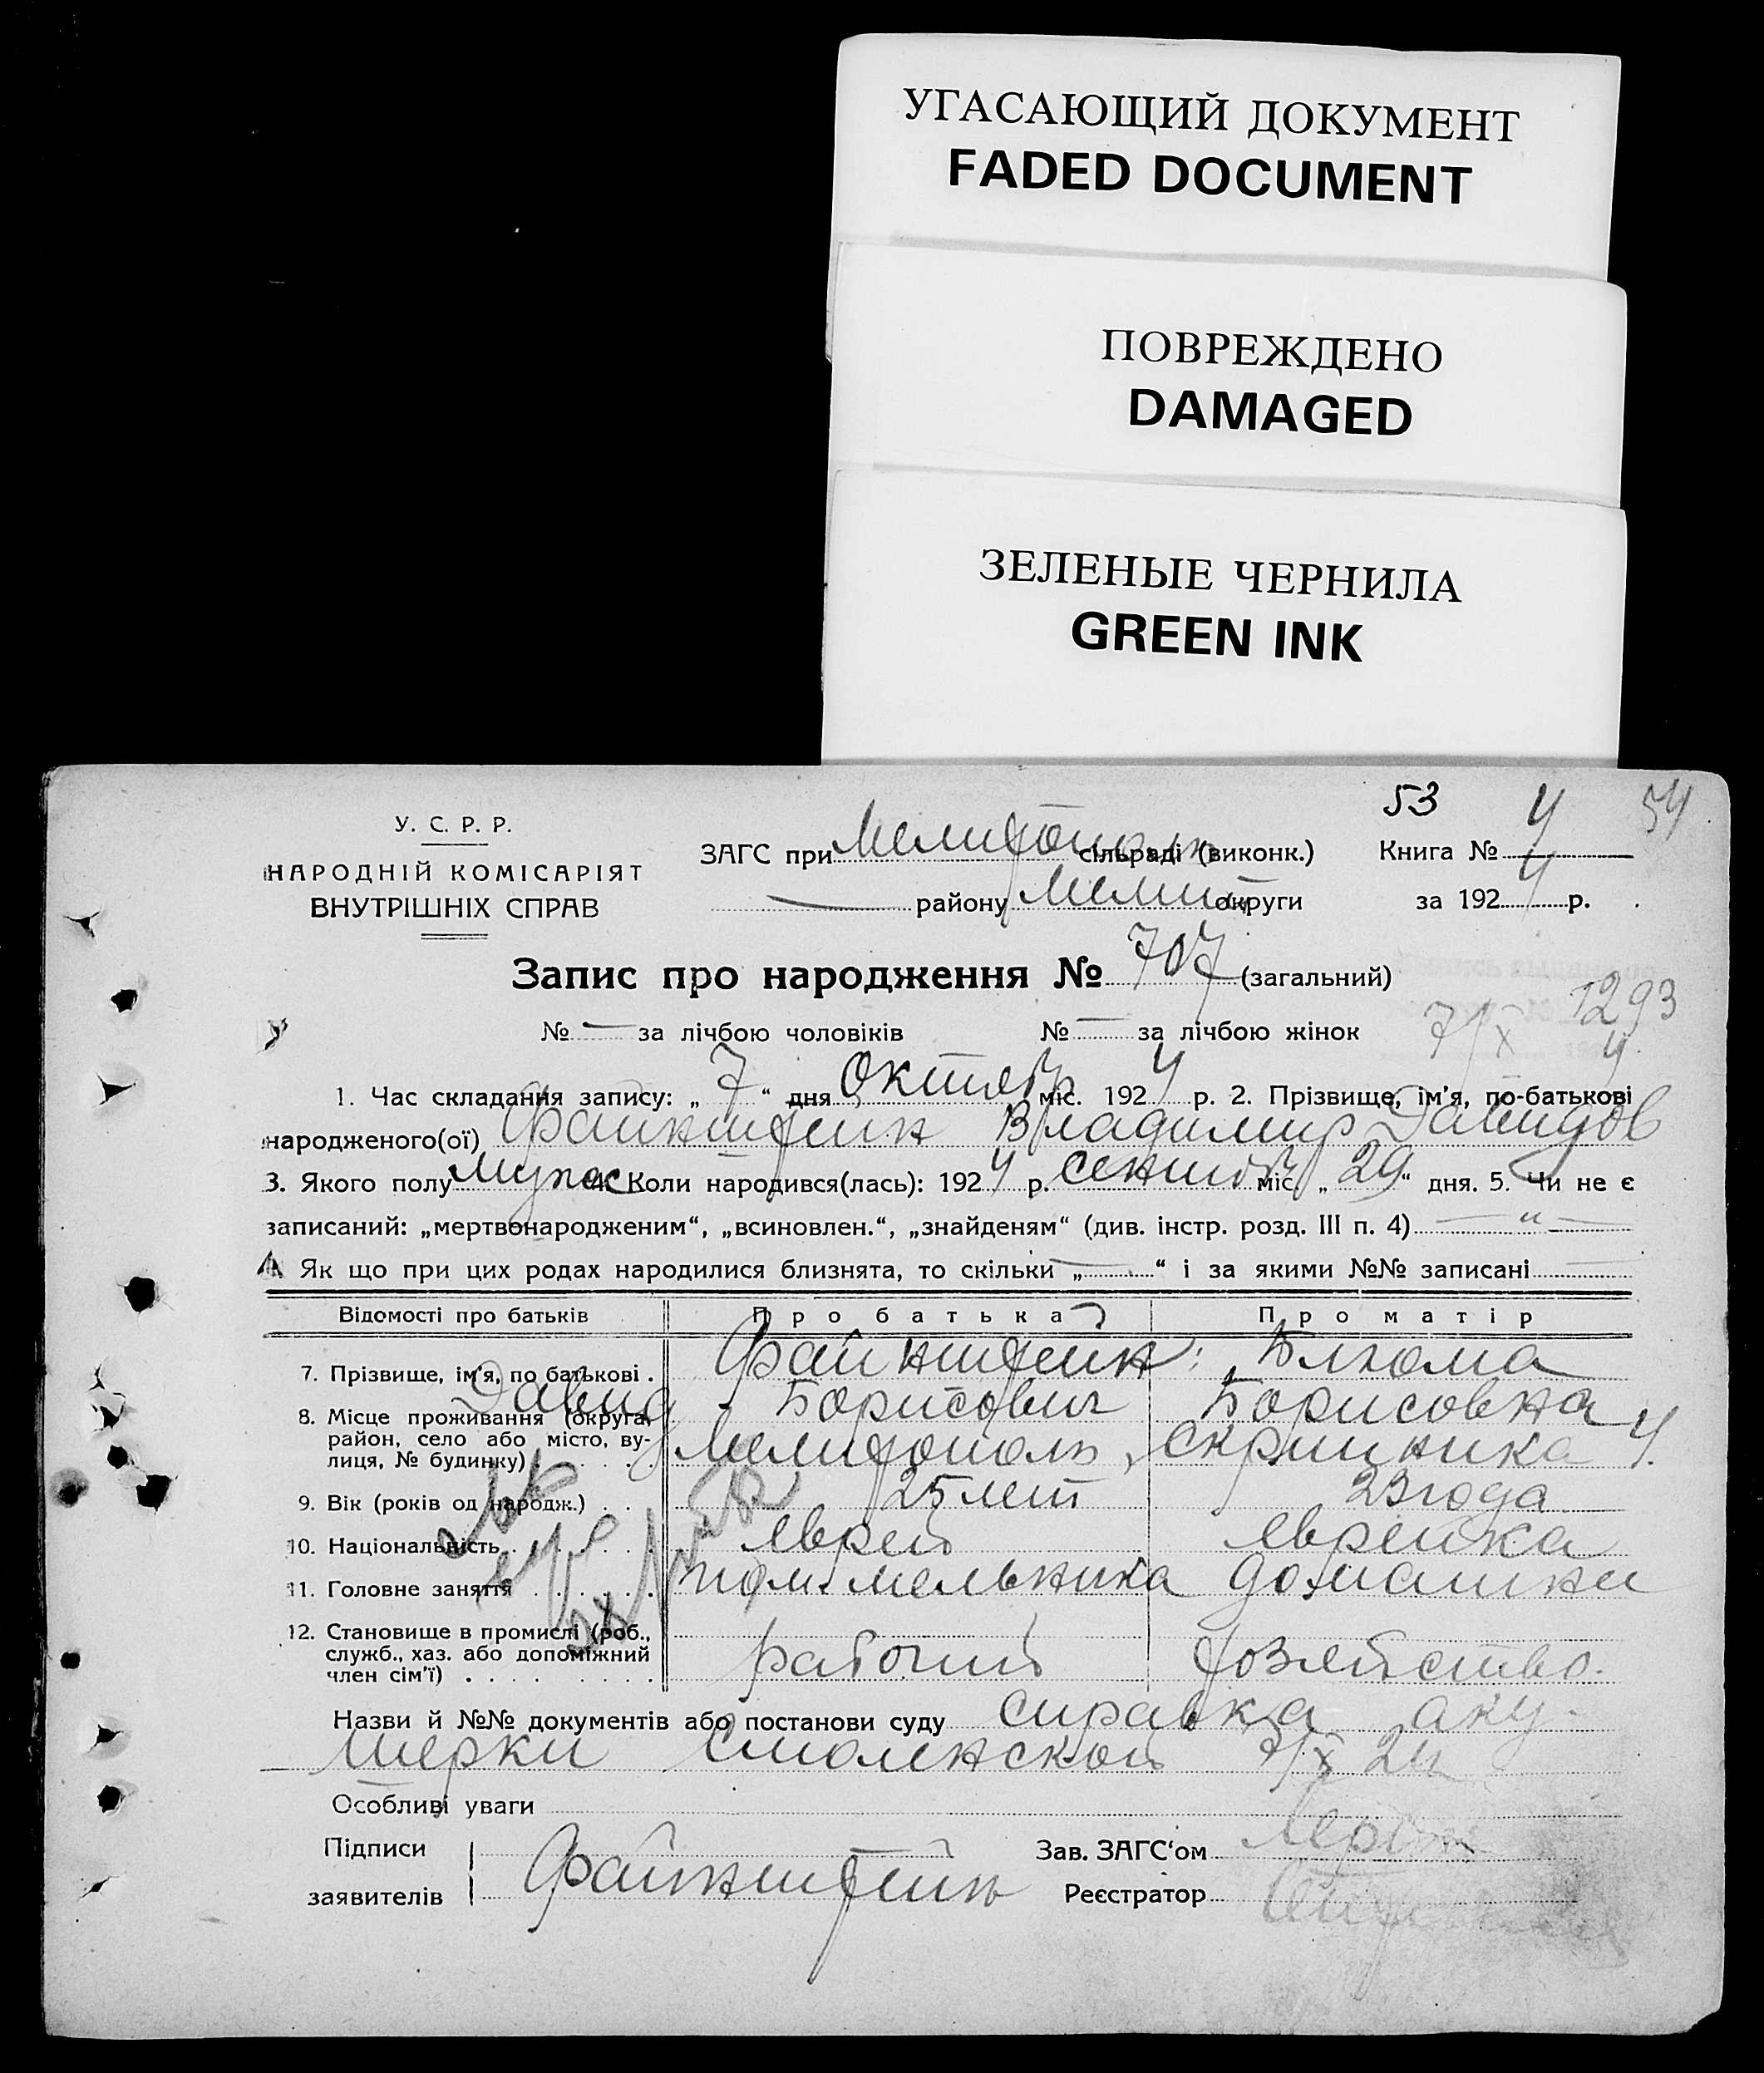 УГАСАЮЩИЙ ДОКУМЕНТ
FADED DOCUMENT
ПОВРЕЖДЕНО
DAMAGED
ЗЕЛЕНЫЕ ЧЕРНИЛА
GREEN INK
53 54
У. С. Р. Р.
НАРОДНІЙ КОМІСАРІЯТ
ВНУТРІШНІХ СПРАВ
ЗАГС при Мелитополь сільраді (виконк.) Книга № 4
— району Мелит округи за 1924 р.
Запис про народження № 707 (загальний)
1293
№ — за лічбою чоловіків № — за лічбою жінок 7/X
1. Час складання запису: „ 7 “ дня Октябр міс. 1924 р. 2. Прізвище, ім'я, по-батькові
народженого(ої) Файнштейн Владимир Давидов
3. Якого полу мужс 4. Коли народився(лась): 1924 р. сентябр міс. „ 29 “ дня. 5. Чи не є
записаний: „мертвонародженим“, „всиновлен.“, „знайденям“ (див. інстр. розд. III п. 4) — „ —
Як що при цих родах народилися близнята, то скільки „ — “ і за якими №№ записані —
Відомості про батьків Про батька Про матір
7. Прізвище, ім'я, по батькові . Файнштейн: Блюма
Давид Борисович Борисовна
8. Місце проживання (округа,
район, село або місто, ву-
лиця, № будинку) . . . . Мелитополь, Скрипника 4.
9. Вік (років од народж.) . . 25 лет 23 года
10. Національність . . . . еврей еврейка
11. Головне заняття . . . . . пом. мельника домашнее
12. Становище в промислі (роб.,
служб., хаз. або допоміжний
член сім'ї) . . . . . . . . рабочий хозяйство.
Назви й №№ документів або постанови суду справка аку-
шерки Смоленской 7/X 24
Особливі уваги
Підписи
заявителів Файнштейн
Зав. ЗАГС'ом
Реєстратор